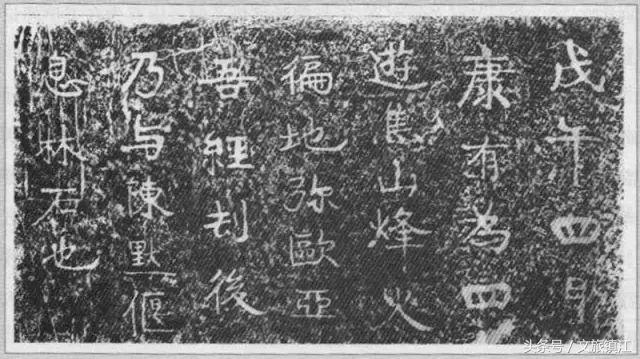 戊午四月
康有為四
遊焦山烽火
徧地弥歐亞
吾經刦後
乃与陳默偃
息林石也
头条号 / 文旅镇江